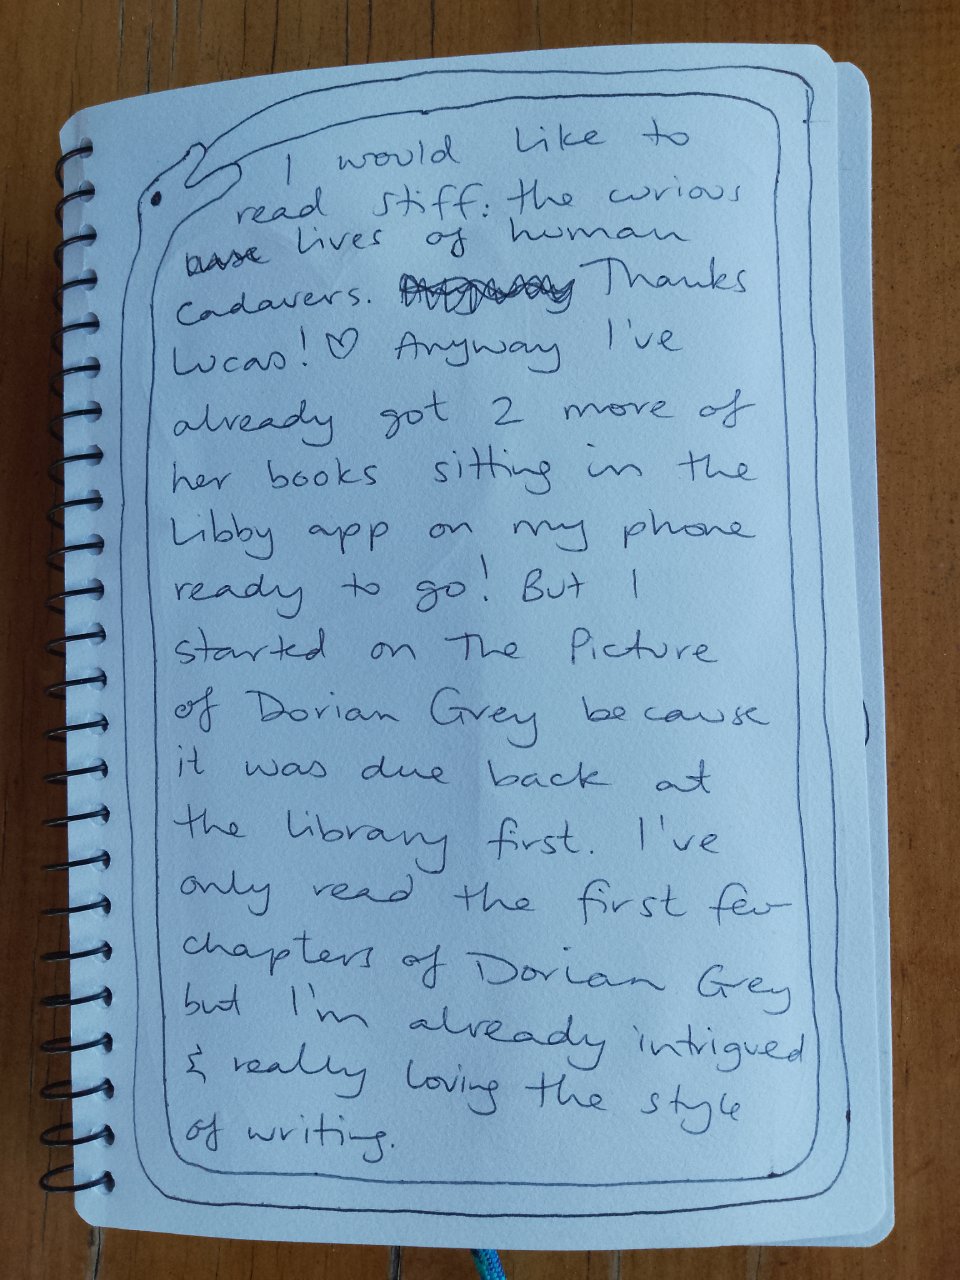 I would like to
read stiff: the curious
lives of human
cadavers. Thanks
Lucas! ♡ Anyway I've
already got 2 more of
her books sitting in the
Libby app on my phone
ready to go! But I
started on The Picture
of Dorian Grey because
it was due back at
the library first. I've
only read the first few
chapters of Dorian Grey
but I'm already intrigued
& really loving the style
of writing.